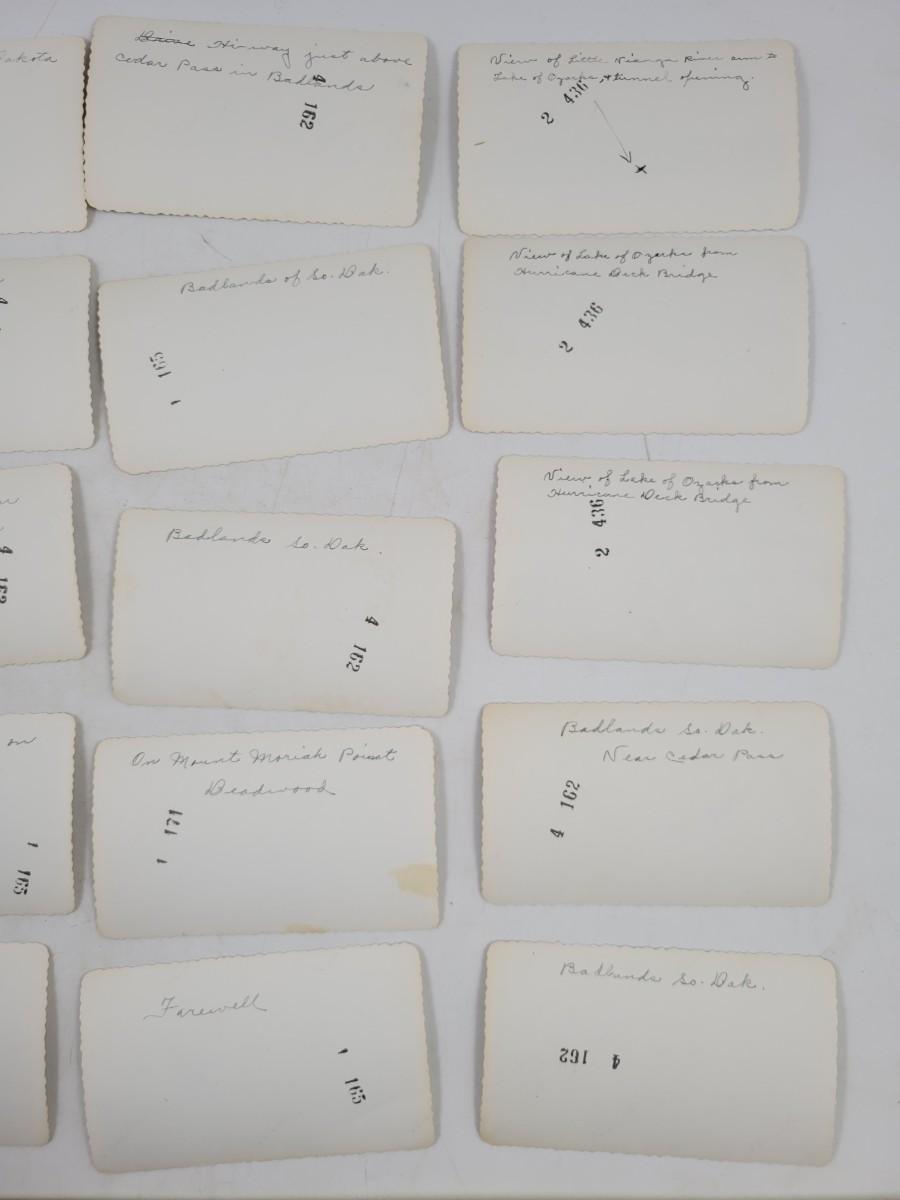 akota
Drive Hi-way just above
Cedar Pass in Badlands
4 162
View of Little Niangua River arm to
Lake of Ozarks, + tunnel opening.
2 436
x
4
Badlands of So. Dak.
1 165
View of Lake of Ozarks from
Hurricane Deck Bridge
2 436
4 162
Badlands So. Dak.
4 162
View of Lake of Ozarks from
Hurricane Deck Bridge
2 436
on
1 165
On Mount Moriah Point
Deadwood
1 171
Badlands So. Dak.
Near Cedar Pass
4 162
Farewell
1 165
Badlands So. Dak.
4 162